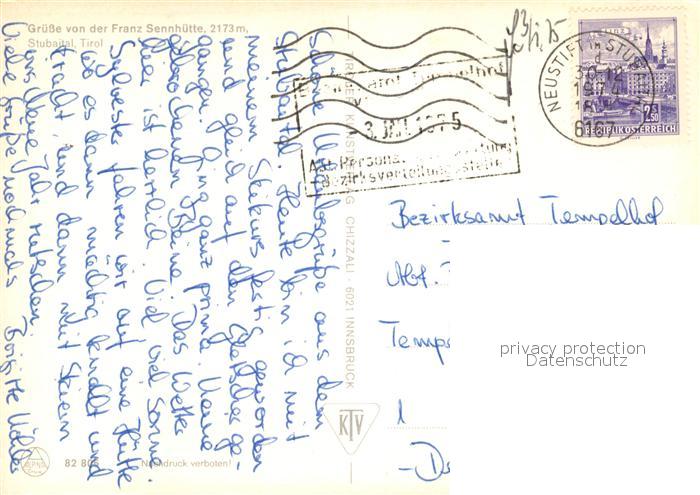 Grüße von der Franz Sennhütte, 2173 m,
Stubaital, Tirol
Schöne Urlaubsgrüße aus dem
Stubaital. Heute bin ich mit
meinem Skikurs fertig geworden
und gleich auf den Gletscher ge-
gangen. Ging ganz prima. Keine
gebrochenen Beine. Das Wetter
hier ist herrlich. Viel viel Sonne.
Sylvester fahren wir auf eine Hütte
wo es dann mächtig knallt und
kracht und dann mit Skiern
ins Neue Jahr rutschen.
Viele Grüße nochmals Brigitte
82 806
Nachdruck verboten!
CHIZZALI · 6021 INNSBRUCK
KTV
Bezirksamt Tempelhof
-3. JAN. 1975
Abt. Personal
Bezirksverteilungsstelle
NEUSTIFT IM STUB
30.12
1974
2.50
REPUBLIK ÖSTERREICH
Bezirksamt Tempelhof
Abt.
Temp
1
privacy protection
Datenschutz